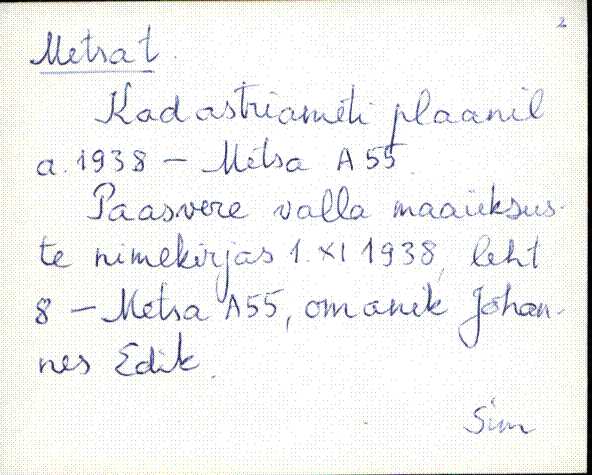 2
Metsa t.
Kadastriameti plaanil
a. 1938 – Metsa A 55.
Paasvere valla maaüksus-
te nimekirjas 1. XI 1938, leht
8 – Metsa A55, omanik Johan-
nes Edik.
Sim